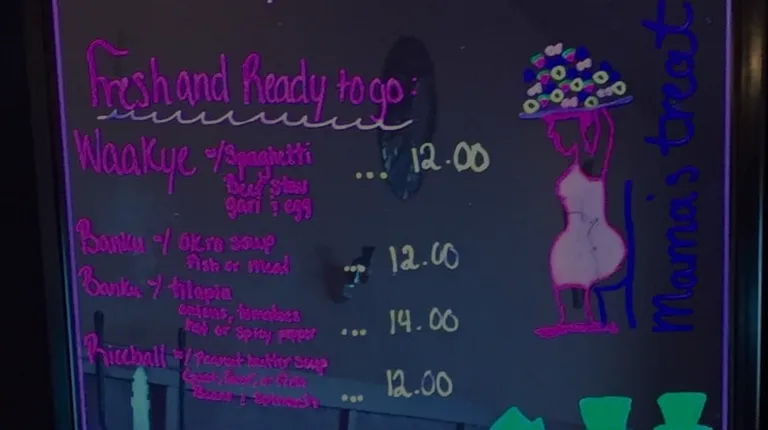 Fresh and Ready to go:
Waakye w/Spaghetti ... 12.00
Beef stew
gari & egg
Banku w/ okra soup
fish or meat ... 12.00
Banku w/ tilapia
onions, tomatoes
hot or spicy pepper ... 14.00
Riceball w/ Peanut butter soup
... 12.00
Mama's treat